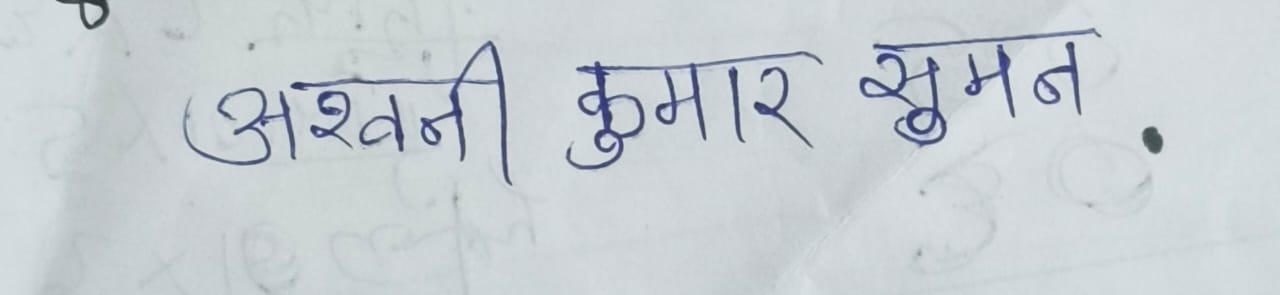 अश्वनी कुमार सुमन